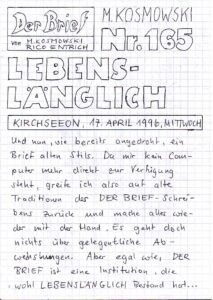 Der Brief
von M. KOSMOWSKI
RICO ENTRICH
M. KOSMOWSKI
Nr. 165
LEBENS-
LÄNGLICH
KIRCHSEEON, 17. APRIL 1996, MITTWOCH
Und nun, wie bereits angedroht, ein
Brief alten Stils. Da mir kein Com-
puter mehr direkt zur Verfügung
steht, greife ich also auf alte
Traditionen des DER BRIEF-Schrei-
bens zurück und mache alles wie-
der mit der Hand. Es geht doch
nichts über gelegentliche Ab-
wechslungen. Aber egal wie, DER
BRIEF ist eine Institution, die
wohl LEBENSLÄNGLICH Bestand hat...